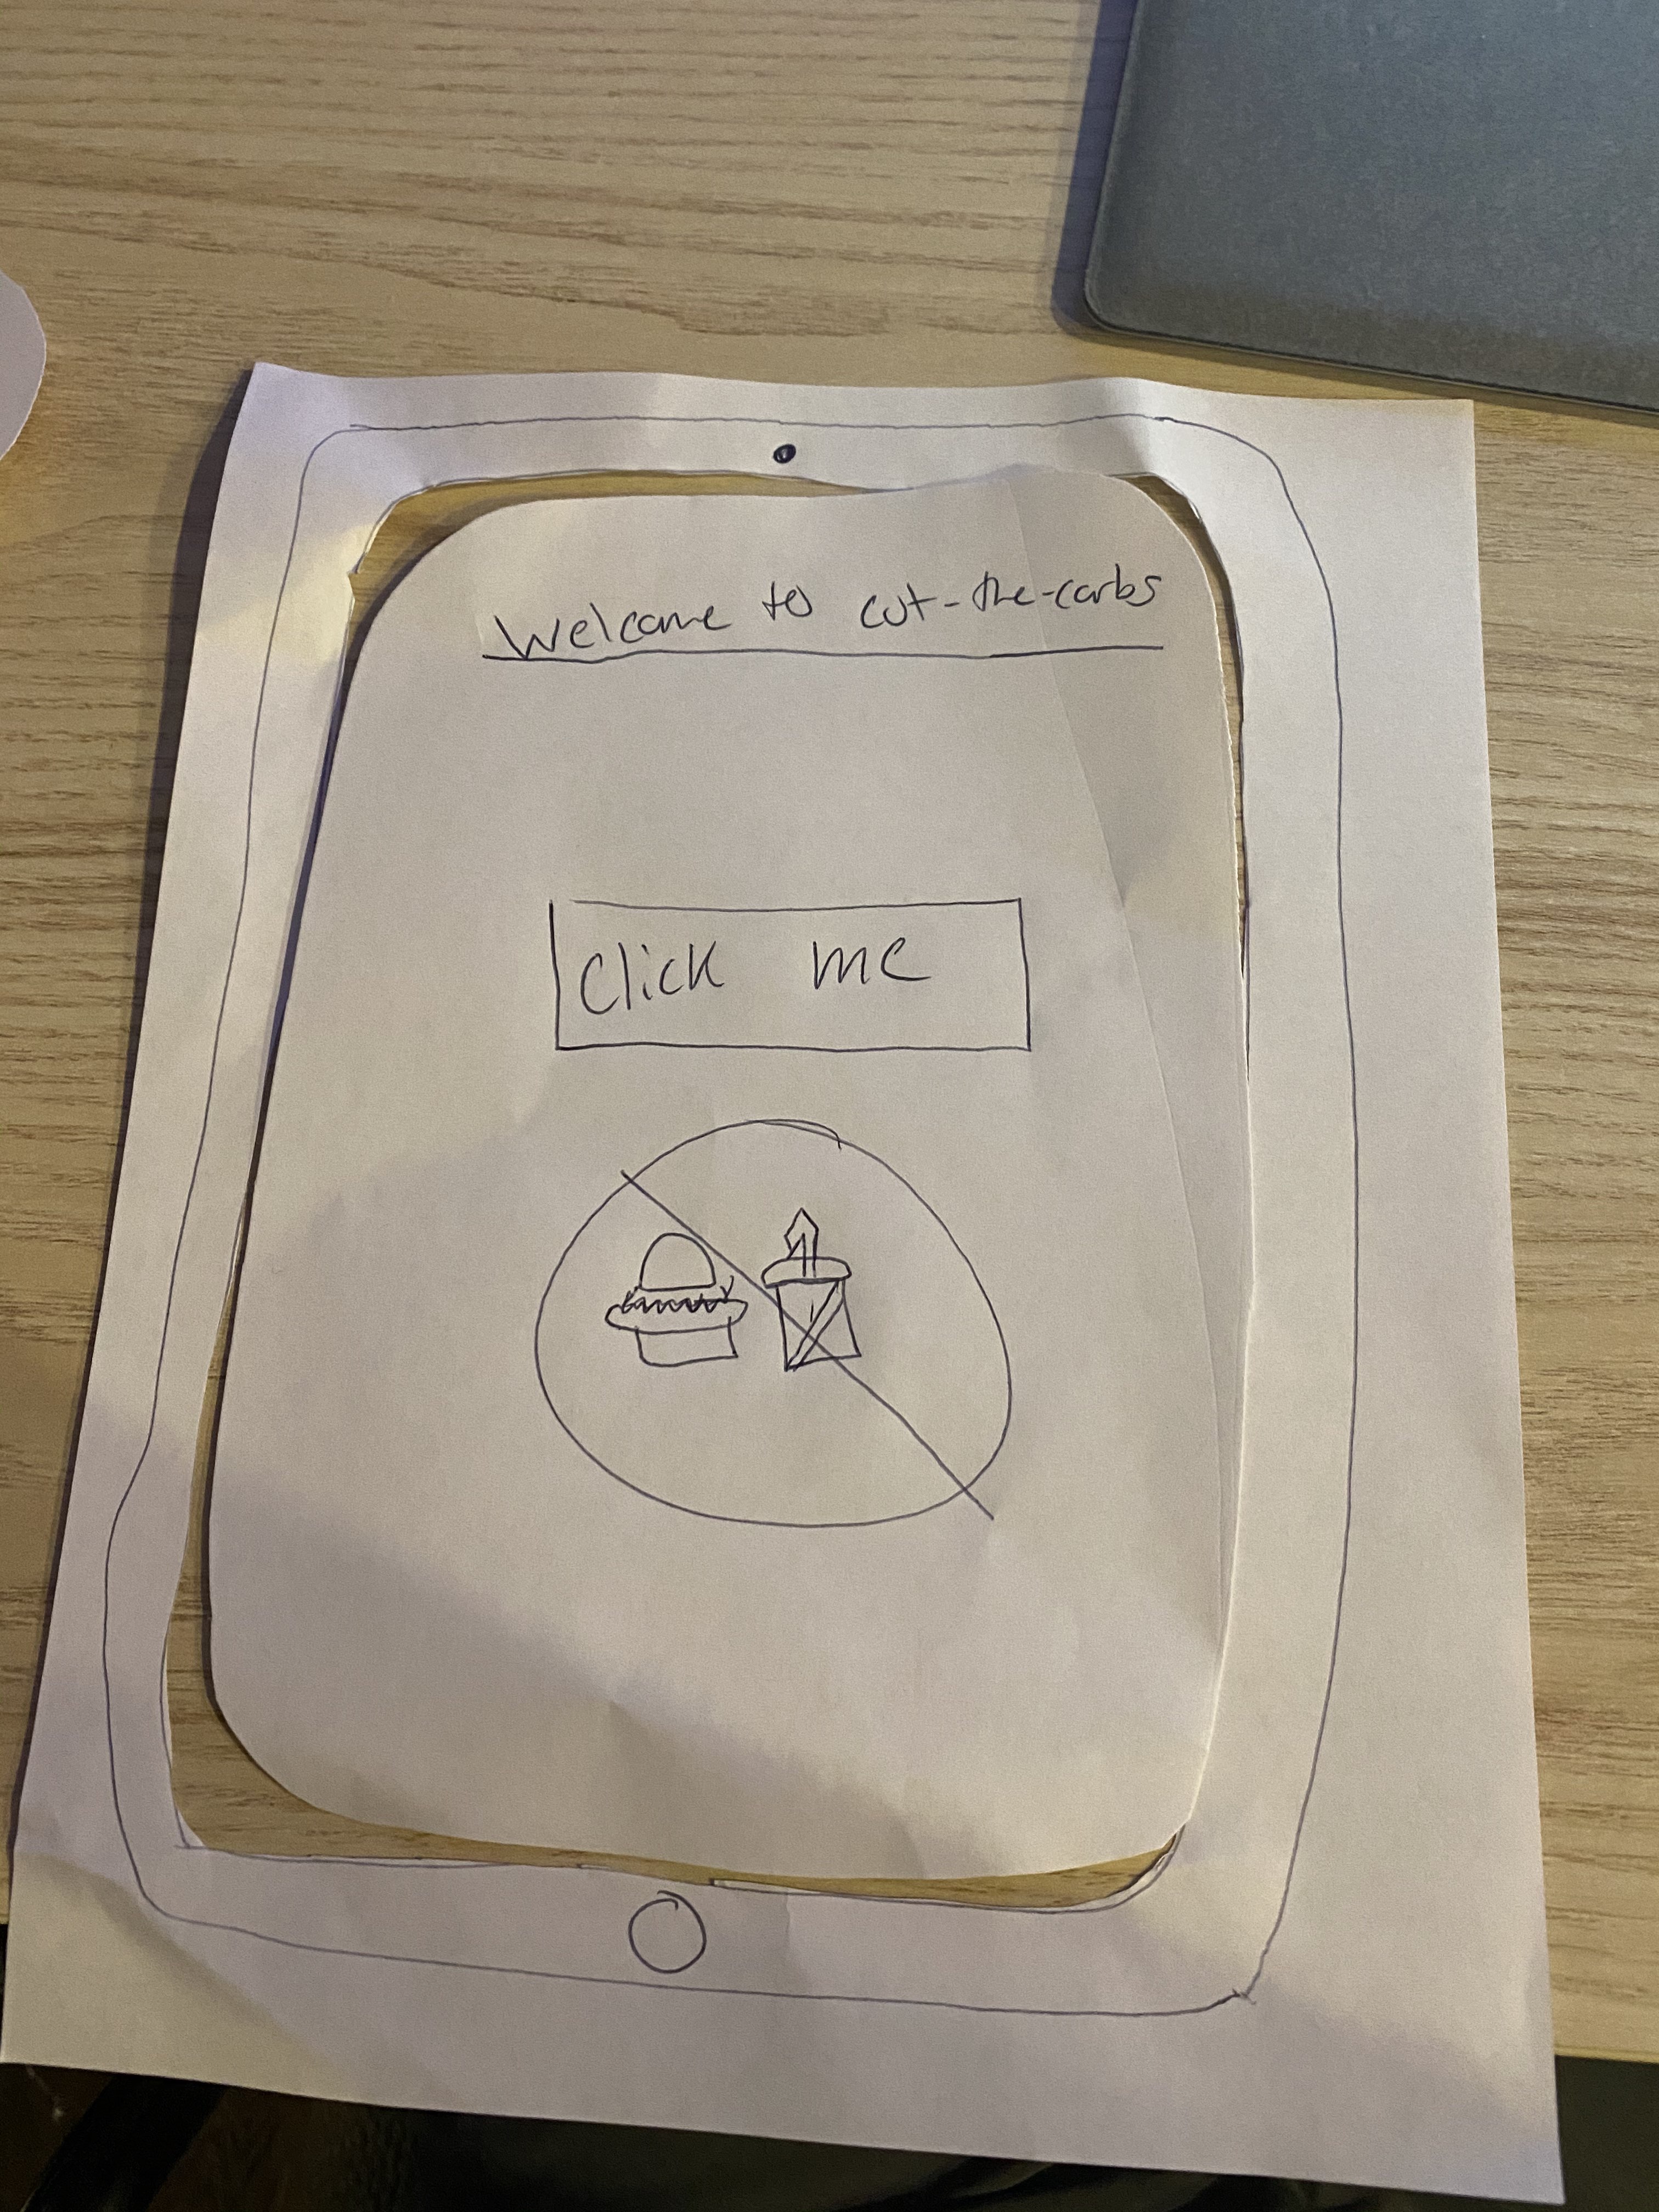 Welcome to cut-the-carbs
Click me